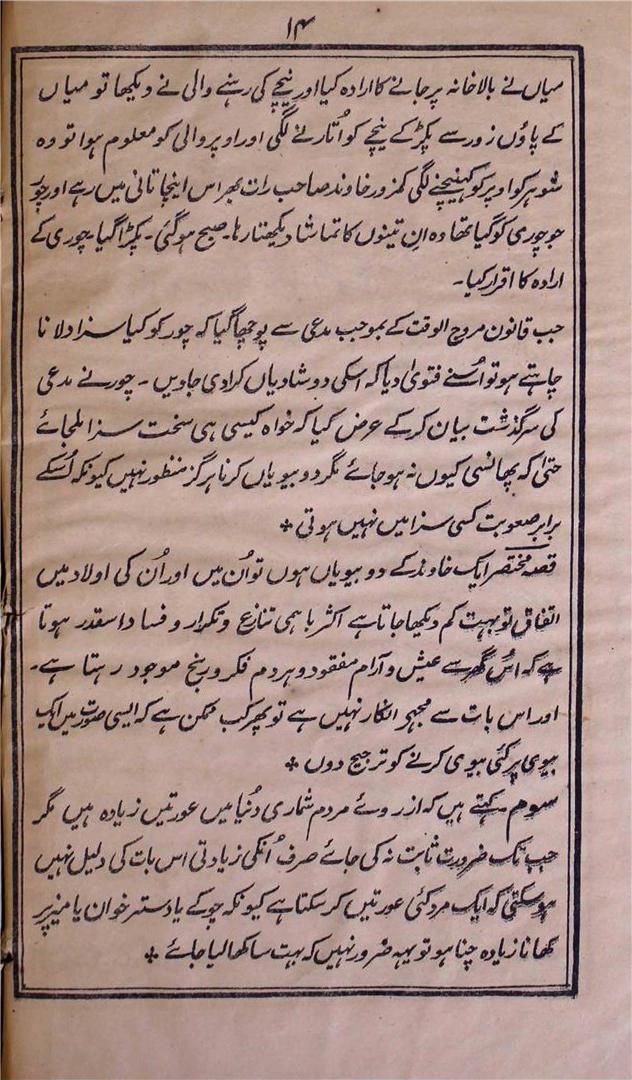 ۱۴
میاں نے بالاخانہ پر جانے کا ارادہ کیا اور نیچے کی رہنے والی نے دیکھا تو میاں
کے پاؤں زور سے پکڑ کے نیچے کو اُتارنے لگی اور اوپر والی کو معلوم ہوا تو وہ
شوہر کو اوپر کو کھینچنے لگی کمزور خاوند صاحب رات بھر اس اینچا تانی میں رہے اور چور
جو چوری کو گیا تھا وہ اِن تینوں کا تماشا دیکھتا رہا۔ صبح ہو گئی۔ پکڑا گیا۔ چوری کے
ارادہ کا اقرار کیا۔
جب قانون مروج الوقت کے بموجب مدعی سے پوچھا گیا کہ چور کو کیا سزا دلانا
چاہتے ہو تو اُسنے فتویٰ دیا کہ اسکی دو شادیاں کرا دی جاویں۔ چور نے مدعی
کی سرگذشت بیان کر کے عرض کیا کہ خواہ کیسی ہی سخت سزا ملجائے
حتیٰ کہ پھانسی کیوں نہ ہو جائے مگر دو بیویاں کرنا ہرگز منظور نہیں کیونکہ اُسکے
برابر صعوبت کسی سزا میں نہیں ہوتی ٭
قصہ مختصر ایک خاوند کے دو بیویاں ہوں تو اُن میں اور اُن کی اولاد میں
اتفاق تو بہت کم دیکھا جاتا ہے اکثر باہمی تنازع و تکرار و فساد اسقدر ہوتا
ہے کہ اُس گھر سے عیش و آرام مفقود و ہر دم فکر و رنج موجود رہتا ہے۔
اور اس بات سے مجھے انکار نہیں ہے تو پھر کب ممکن ہے کہ ایسی صورت میں ایک
بیوی پر کئی بیوی کرنے کو ترجیح دوں ٭
سوم کہتے ہیں کہ از روئے مردم شماری دُنیا میں عورتیں زیادہ ہیں مگر
جب تک ضرورت ثابت نہ کی جائے صرف اُنکی زیادتی اس بات کی دلیل نہیں
ہو سکتی کہ ایک مرد کئی عورتیں کر سکتا ہے کیونکہ چوکے یا دسترخوان یا میز پر
کھانا زیادہ چنا ہو تو یہہ ضرور نہیں کہ بہت سا کھا لیا جائے ٭